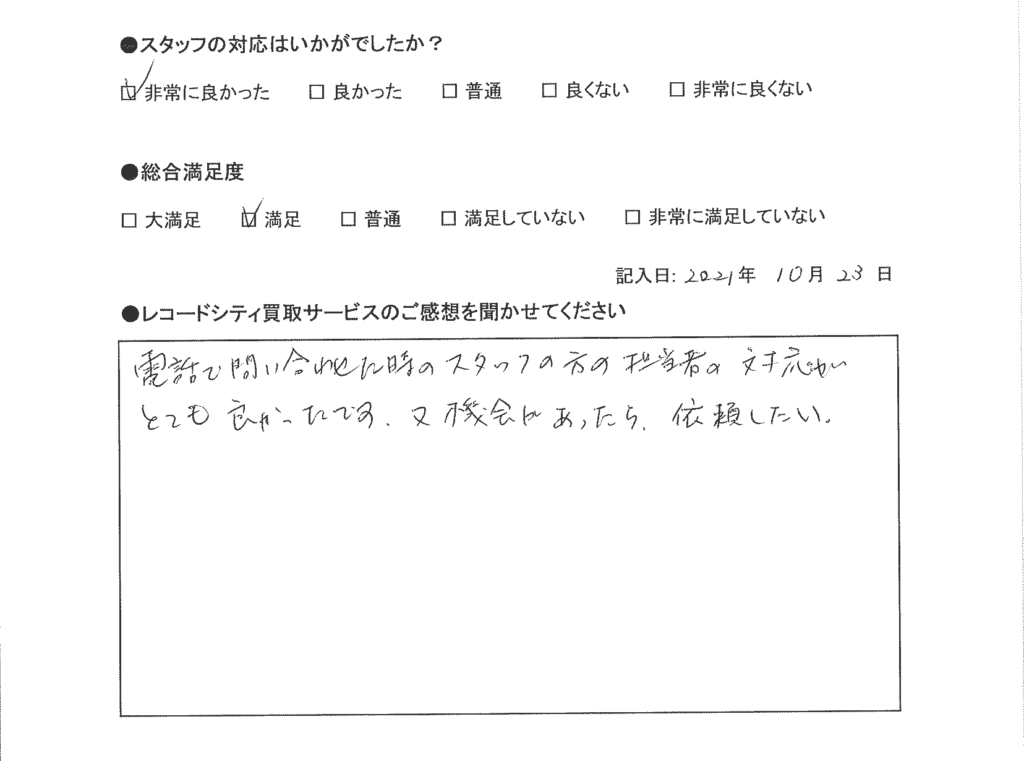 ●スタッフの対応はいかがでしたか？
☑ 非常に良かった □ 良かった □ 普通 □ 良くない □ 非常に良くない
●総合満足度
□ 大満足 ☑ 満足 □ 普通 □ 満足していない □ 非常に満足していない
記入日: 2021年 10月 23日
●レコードシティ買取サービスのご感想を聞かせてください
電話で問い合わせた時のスタッフの方の担当者の対応が
とても良かったです、又機会があったら、依頼したい。